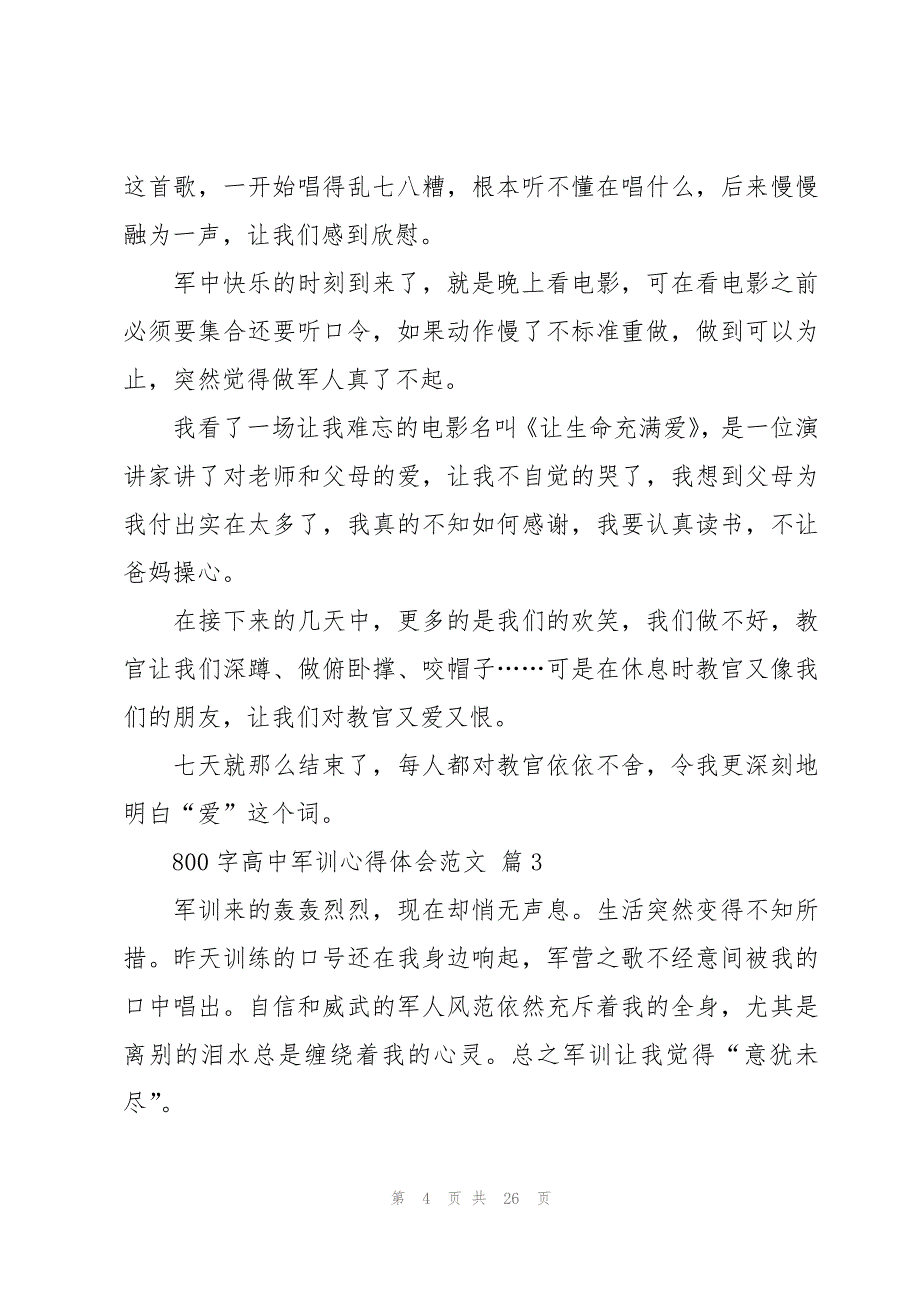 这首歌，一开始唱得乱七八糟，根本听不懂在唱什么，后来慢慢
融为一声，让我们感到欣慰。
军中快乐的时刻到来了，就是晚上看电影，可在看电影之前
必须要集合还要听口令，如果动作慢了不标准重做，做到可以为
止，突然觉得做军人真了不起。
我看了一场让我难忘的电影名叫《让生命充满爱》，是一位演
讲家讲了对老师和父母的爱，让我不自觉的哭了，我想到父母为
我付出实在太多了，我真的不知如何感谢，我要认真读书，不让
爸妈操心。
在接下来的几天中，更多的是我们的欢笑，我们做不好，教
官让我们深蹲、做俯卧撑、咬帽子……可是在休息时教官又像我
们的朋友，让我们对教官又爱又恨。
七天就那么结束了，每人都对教官依依不舍，令我更深刻地
明白“爱”这个词。
800 字高中军训心得体会范文 篇 3
军训来的轰轰烈烈，现在却悄无声息。生活突然变得不知所
措。昨天训练的口号还在我身边响起，军营之歌不经意间被我的
口中唱出。自信和威武的军人风范依然充斥着我的全身，尤其是
离别的泪水总是缠绕着我的心灵。总之军训让我觉得“意犹未
尽”。
第 4 页 共 26 页